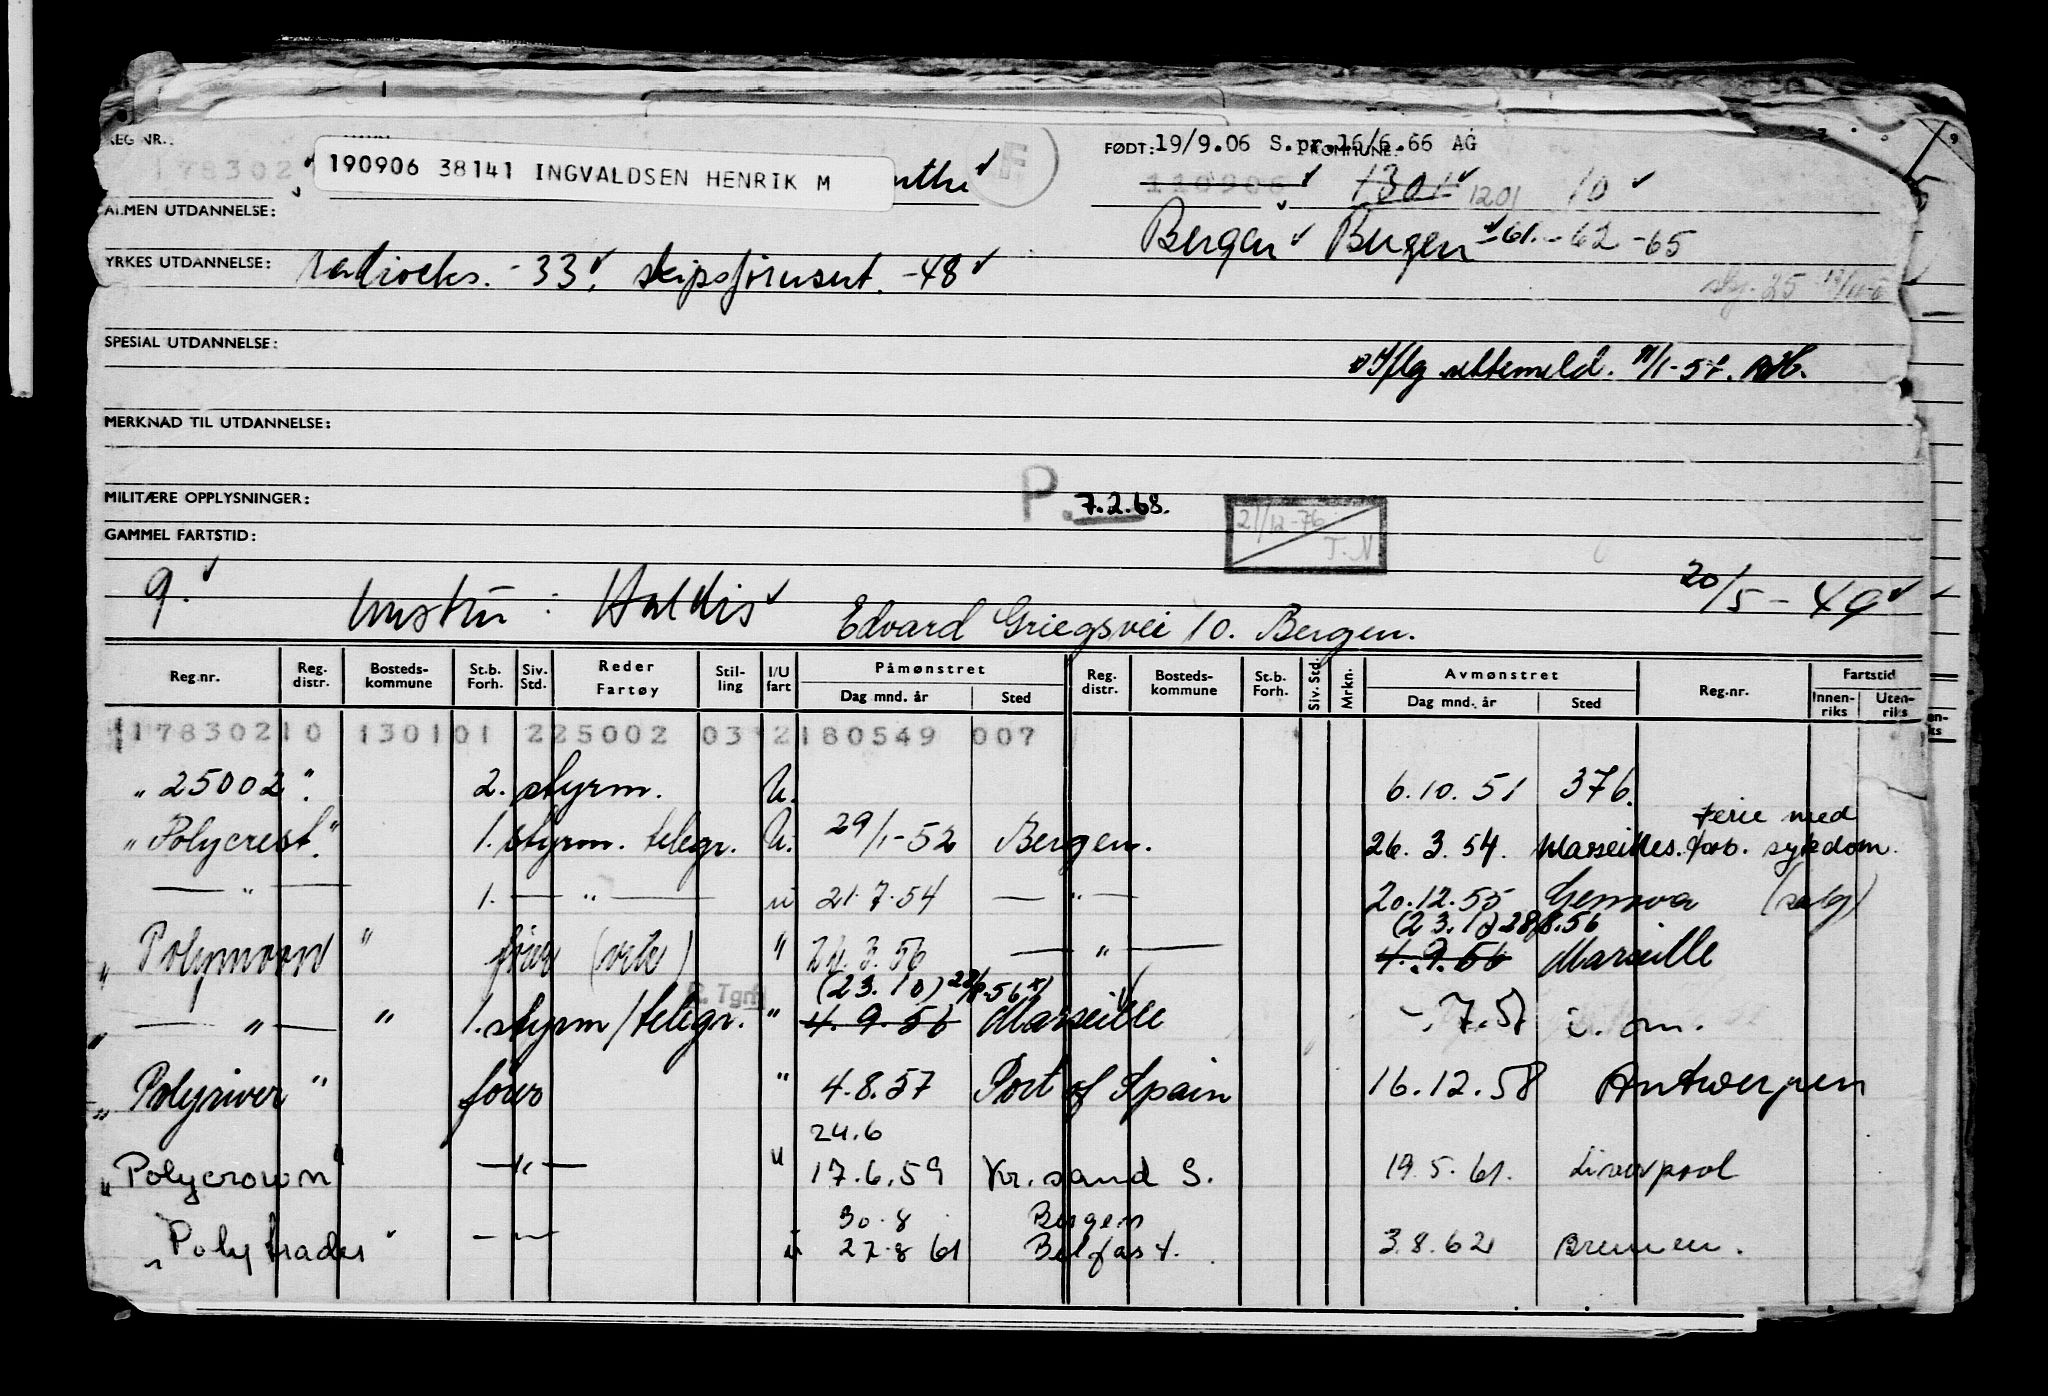 REG NR.:
FØDT: 19/9.06 S.pr.16/6.66 AG
KOMMUNE:
178302
190906 38141 INGVALDSEN HENRIK M
F
110906 1301 1201 10
ALMEN UTDANNELSE:
Bergen Bergen -61.-62-65
YRKES UTDANNELSE: -33. -48
SPESIAL UTDANNELSE:
MERKNAD TIL UTDANNELSE:
MILITÆRE OPPLYSNINGER:
P. 7.2.68.
21/12-76 T.N
GAMMEL FARTSTID:
9. hustru: Haldis 20/5-49
Edvard Griegsvei 10. Bergen.
Reg.nr. Reg. distr. Bosteds-kommune St.b. Forh. Siv. Std. Reder Fartøy Stil-ling I/U fart Påmønstret Dag mnd. år Sted Reg. distr. Bosteds-kommune St.b. Forh. Siv. Std. Mrkn. Avmønstret Dag mnd. år Sted Reg.nr. Fartstid Innen-riks Uten-riks
17830210 130101 225002 03 2 180549 007
"25002". 2. styrm. U. 6.10.51 376.
"Polycrest." 1. styrm. telegr. U. 29/1-52 Bergen. 26.3.54. Marseilles. Ferie med forb. sykdom.
— " — 1. — " — u 21.7.54 — " — 20.12.55 Genova (salg)
(23.10) 28/8.56
"Polymoon" fører " 24.3.56 — " — 4.9.56 Marseille
(23.10) 28/8-56 x)
R. Tgm
" — " — " 1. styrm/telegr. " 4.9.56 Marseille -.7.57 i. om.
"Polyriver" fører " 4.8.57 Port of Spain 16.12.58 Antwerpen
24.6
"Polycrown" — " — " 17.6.59 Kr.sand S. 19.5.61. Liverpool
30.8 Bergen
"Polytrader" — " — u 27.8 61 Belfast. 3.8.62 Bremen.